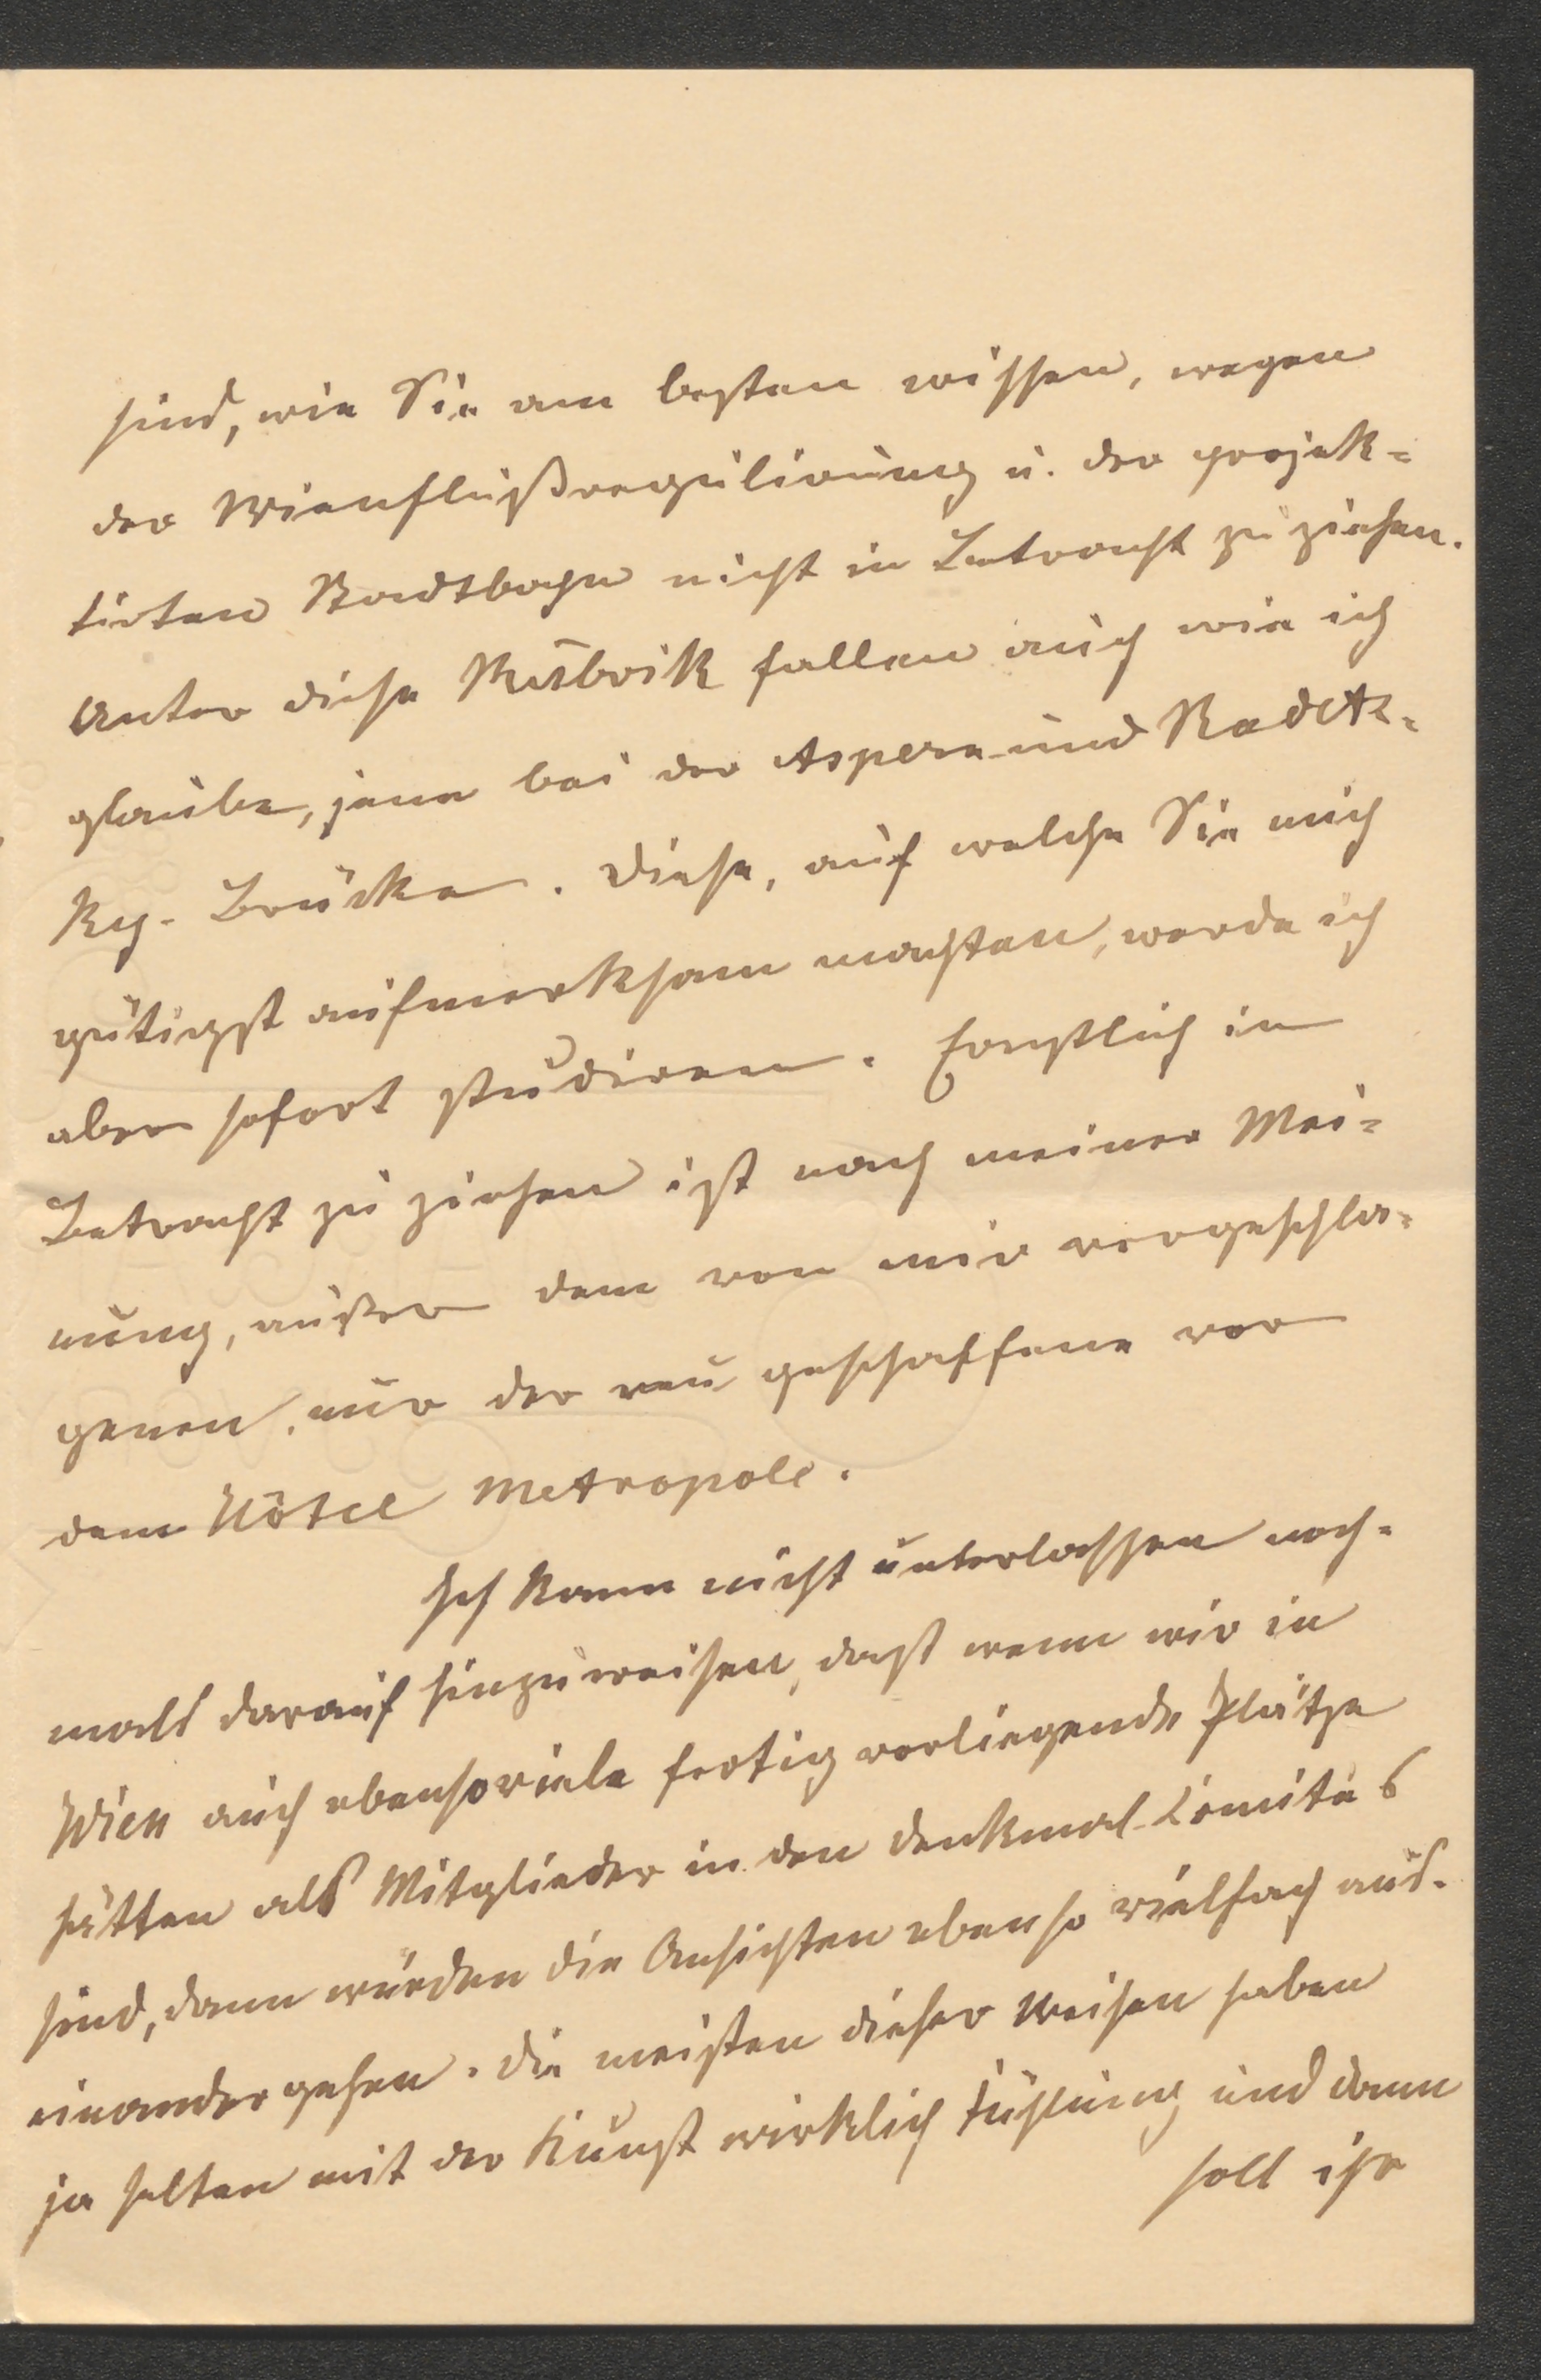 sind, wie Sie am besten wissen, wegen
der Wienflußregulirung u. der projek=
tirten Stadtbahn nicht in Betracht zu ziehen.
Unter diese Rubrik fallen auch wie ich
glaube, jene bei der Aspern- und Radetz=
ky-Brücke. Diese, auf welche Sie mich
gütigst aufmerksam machten, werde ich
aber sofort studiren. Ernstlich in
Betracht zu ziehen ist nach meiner Mei=
nung, außer dem von mir vorgeschla=
genen, nur der neu geschaffene vor
dem Hôtel Metropole.
Ich kann nicht unterlassen noch=
mals darauf hinzuweisen, dass wenn wir in
Wien auch ebensoviele fertig vorliegende Plätze
hätten als Mitglieder in den Denkmal-Comités
sind, dann würden die Ansichten ebenso vielfach aus=
einandergehen. Die meisten dieser Weisen haben
ja selten mit der Kunst wirklich Fühlung und dann
soll ihr